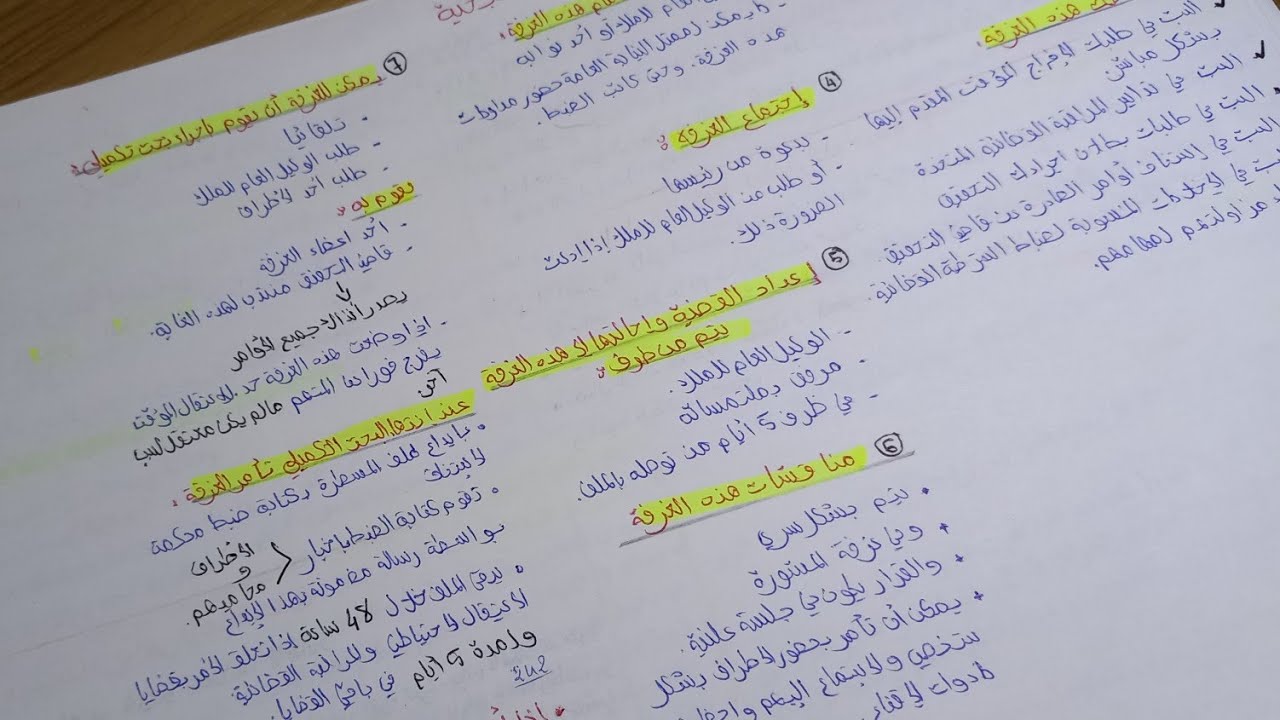 هذه الغرفة.
البت في طلبات الإفراج المؤقت المقدم إليها
بشكل مباشر
البت في تدابير المراقبة القضائية المتخذة
البت في طلبات بطلان اجراءات التحقيق
البت في استئناف أوامر الصادرة من قاضي التحقيق.
في الإخلالات المنسوبة لضباط الشرطة القضائية
مزاولتهم لمهامهم.
هذه الغرفة.
العام للملك أو أحد نوابه
لا يمكن لممثل النيابة العامة حضور مداولات
هذه الغرفة. وحتى كاتب الضبط.
④ إجتماع الغرفة:
- بدعوة من رئيسها
- أو طلب من الوكيل العام للملك إذا إدعت
الضرورة ذلك.
⑤ إعداد القضية وإحالتها لا هذه الغرفة
يتم من طرف:
- الوكيل العام للملك.
- مرفق بملتمساته
- في ظرف 5 أيام من توصله بالملف.
⑥ مناقشات هذه الغرفة
• تتم بشكل سري
• وفي غرفة المشورة
• والقرار يكون في جلسة علنية.
• يمكن أن تأمر بحضور الأطراف بشكل
شخصي والاستماع إليهم
⑦ يمكن للغرفة أن تقوم بإجراء بحث تكميلي:
- تلقائيا
- طلب الوكيل العام للملك
- طلب أحد الأطراف
تقوم به:
- أحد أعضاء الغرفة
- قاضي التحقيق منتدب لهذه الغاية.
↓
جميع الأوامر
- إذا وضعت هذه الغرفة حد للاعتقال المؤقت
يفرج فورا على المتهم مالم يكن معتقل لسبب
آخر
عند انتهاء البحث التكميلي تأمر الغرفة:
• بإيداع ملف المسطرة بكتابة ضبط محكمة
الاستئناف
• تقوم كتابة الضبط بإخبار < الأطراف
و
محاميهم.
بواسطة رسالة مضمونة بهذا الإيداع
• يبقى الملف خلال 48 ساعة إذا تعلق الأمر بقضايا
الاعتقال الاحتياطي والمراقبة القضائية
ولمدة 5 أيام في باقي القضايا.
242